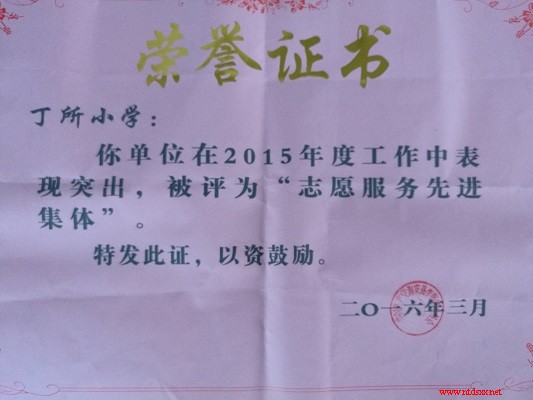 荣誉证书
丁所小学：
你单位在2015年度工作中表
现突出，被评为“志愿服务先进
集体”。
特发此证，以资鼓励。
二〇一六年三月
www.ntdsxx.net